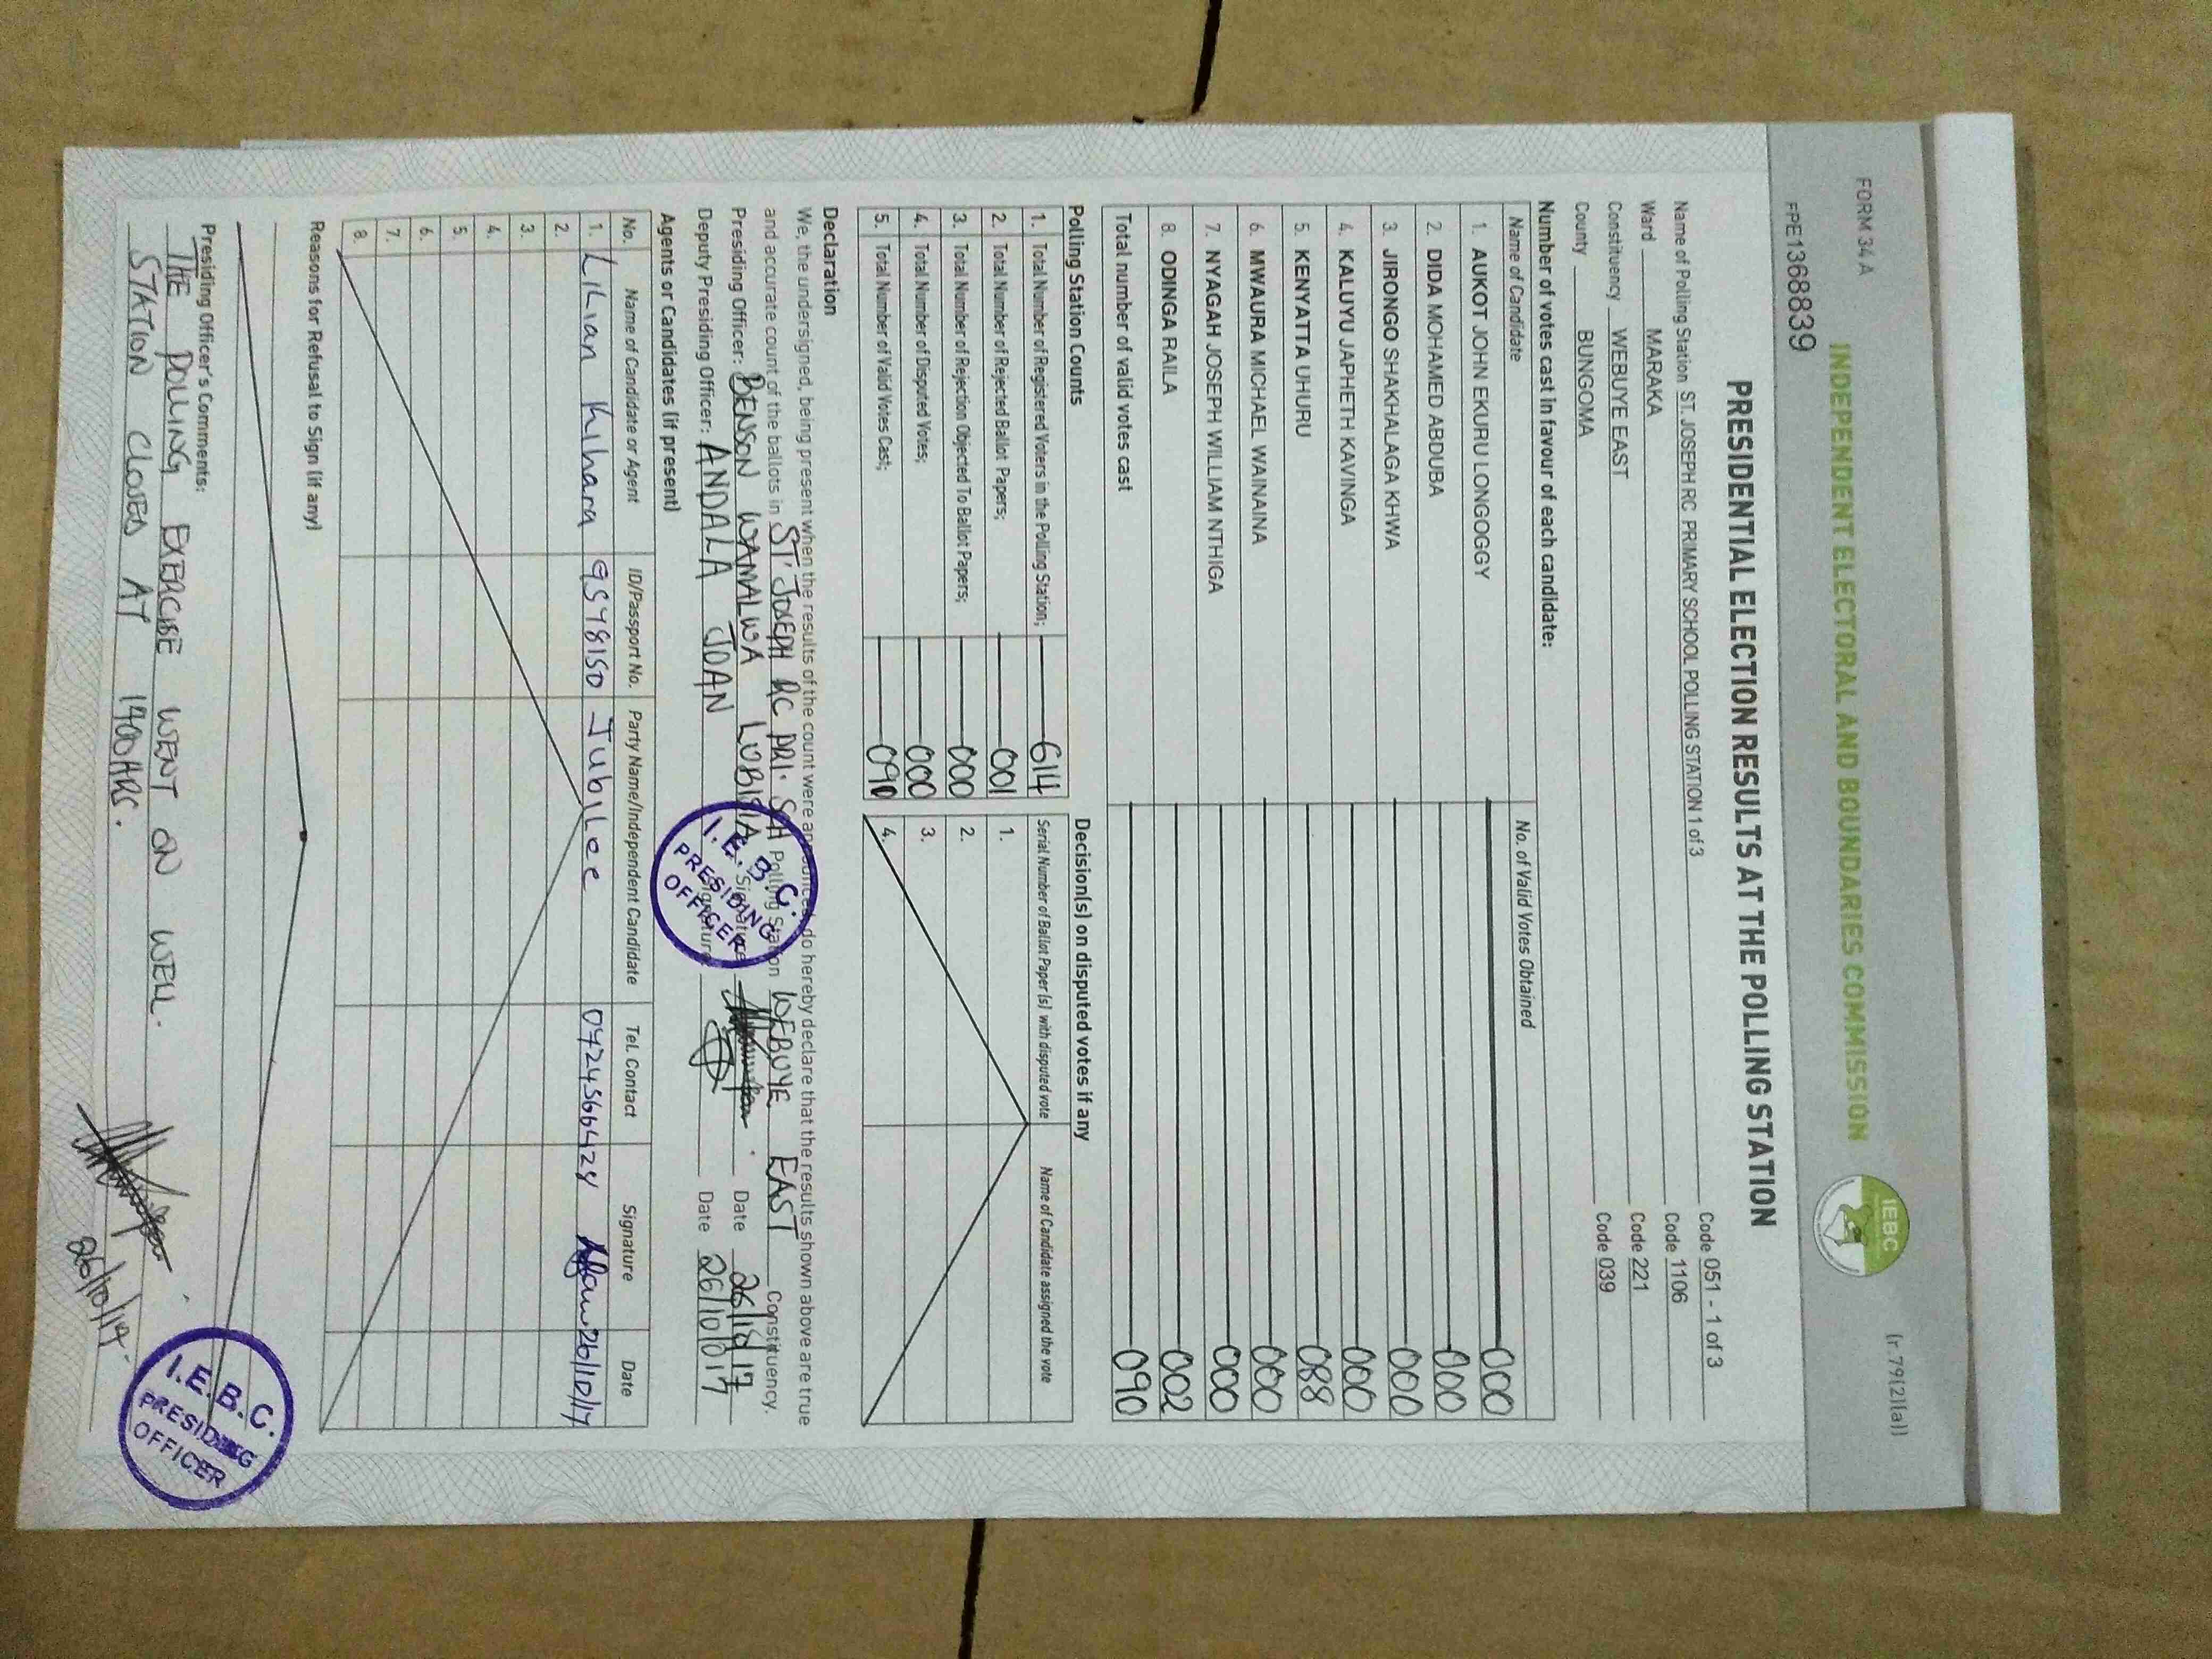 FORM 34A
(r.79(2)(a))
INDEPENDENT ELECTORAL AND BOUNDARIES COMMISSION
IEBC
FPE1368839
PRESIDENTIAL ELECTION RESULTS AT THE POLLING STATION
Name of Polling Station ST. JOSEPH RC PRIMARY SCHOOL POLLING STATION 1 of 3 Code 051 - 1 of 3
Ward MARAKA Code 1106
Constituency WEBUYE EAST Code 221
County BUNGOMA Code 039
Number of votes cast in favour of each candidate:
Name of Candidate No. of Valid Votes Obtained
1. AUKOT JOHN EKURU LONGOGGY 000
2. DIDA MOHAMED ABDUBA 000
3. JIRONGO SHAKHALAGA KHWA 000
4. KALUYU JAPHETH KAVINGA 000
5. KENYATTA UHURU 088
6. MWAURA MICHAEL WAINAINA 000
7. NYAGAH JOSEPH WILLIAM NTHIGA 000
8. ODINGA RAILA 002
Total number of valid votes cast 090
Polling Station Counts
1. Total Number of Registered Voters in the Polling Station; 614
2. Total Number of Rejected Ballot Papers; 001
3. Total Number of Rejection Objected To Ballot Papers; 000
4. Total Number of Disputed Votes; 000
5. Total Number of Valid Votes Cast; 090
Decision(s) on disputed votes if any
Serial Number of Ballot Paper (s) with disputed vote Name of Candidate assigned the vote
1.
2.
3.
4.
Declaration
We, the undersigned, being present when the results of the count were announced, do hereby declare that the results shown above are true
and accurate count of the ballots in ST. JOSEPH RC PRI. SCH Polling Station WEBUYE EAST Constituency.
Presiding Officer: BENSON WAMALWA LUBISIA Signature Date 26/10/17
Deputy Presiding Officer: ANDALA JOAN Signature Date 26/10/017
I.E.B.C.
PRESIDING
OFFICER
Agents or Candidates (if present)
No. Name of Candidate or Agent ID/Passport No. Party Name/Independent Candidate Tel. Contact Signature Date
1. Lilian Kihara 9578150 Jubilee 26/10/17
2.
3.
4.
5.
6.
7.
8.
Reasons for Refusal to Sign (if any)
Presiding Officer's Comments:
THE POLLING EXERCISE WENT ON WELL.
STATION CLOSED AT 1400HRS.
26/10/17
I.E.B.C.
PRESIDING
OFFICER